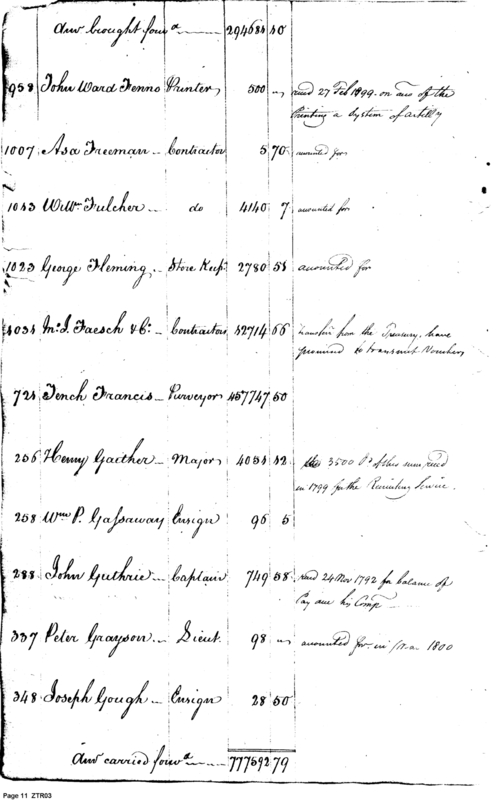 Amt brought forwd 294684 40
958 John Ward Fenno Printer 500 " recd 27 Feb 1799 on acco of the
Printing a System of Artilly
1007 Asa Freeman Contractor 5 70 accounted for
1043 Wm Fulcher do 4140 7 accounted for
1023 George Fleming Store Keepr 2780 55 accounted for
1034 Mr. J. Faesch & Co. Contractors 12714 66 transfers from the Treasury, have
promised to transmit Vouchers
724 Tench Francis Purveyor 457747 50
256 Henry Gaither Major 4034 42 3500 Ds of this sum recd
in 1799 for the Recruiting Service.
258 Wm P. Gassaway Ensign 96 5
288 John Guthrie Captain 749 58 recd 24 Nov 1792 for balance of
Pay due his Compy
337 Peter Grayson Lieut. 98 " accounted for in 1800
348 Joseph Gough Ensign 28 50
Amt carried forwd 777592 79
Page 11 ZTR03